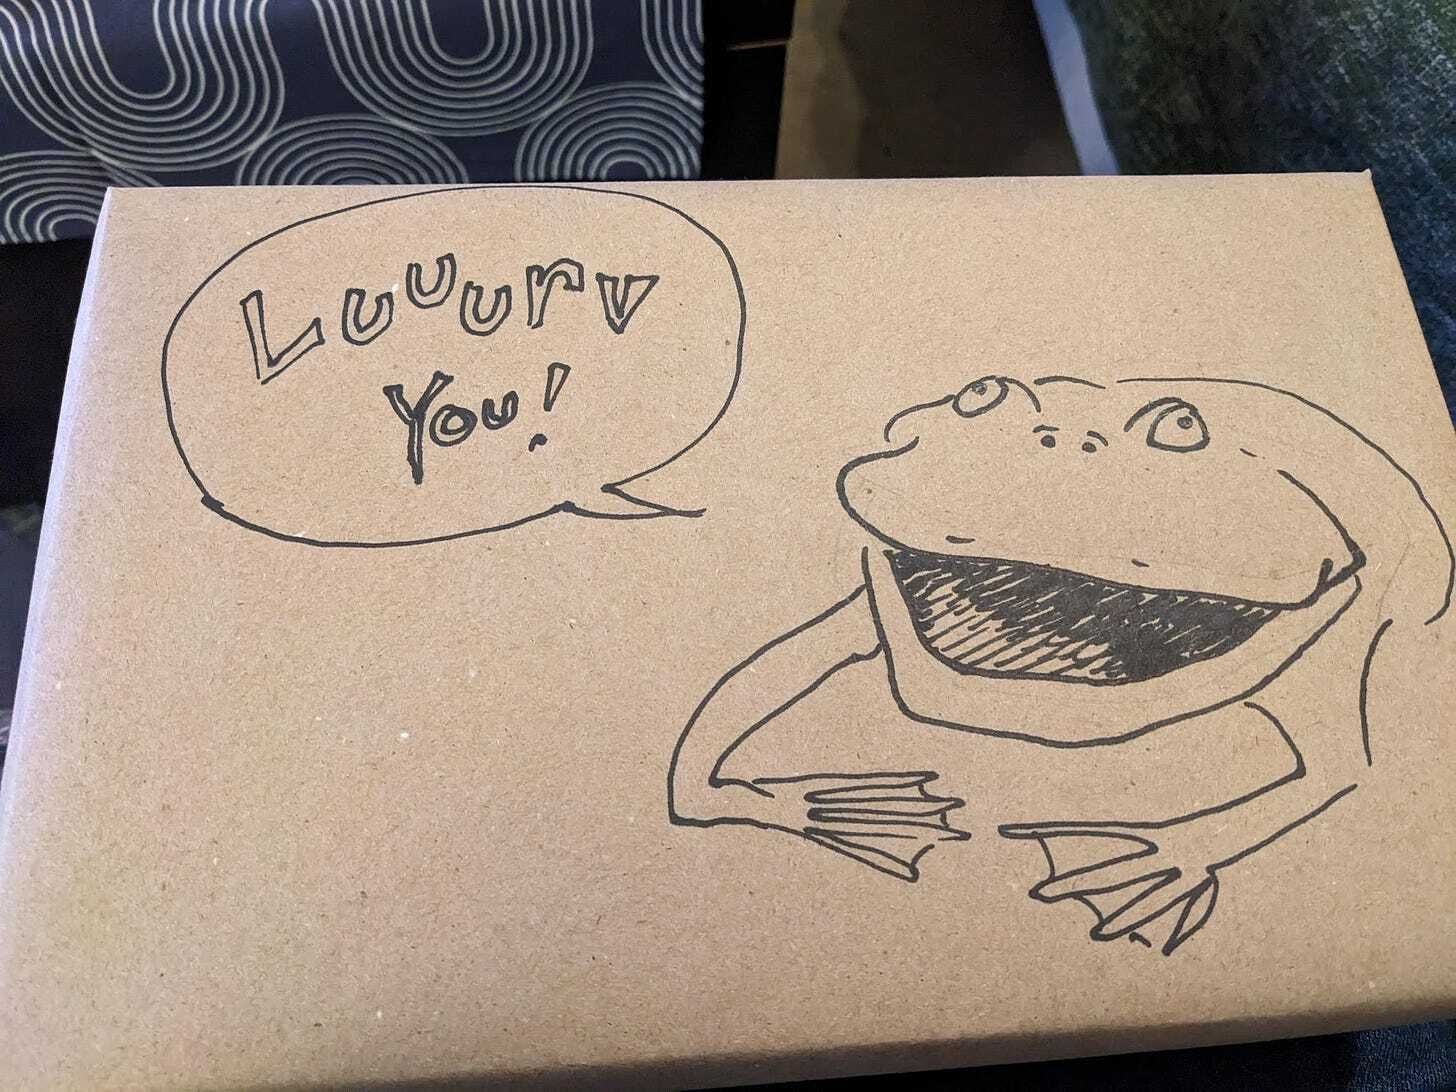 Luuurv
You!